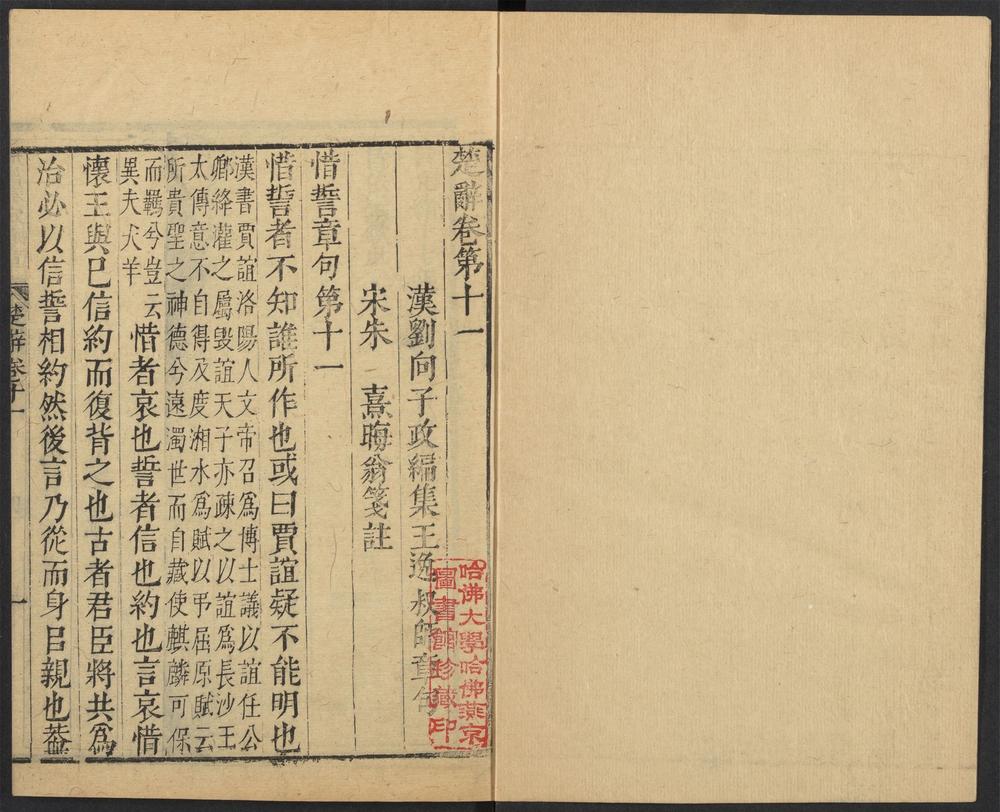 楚辭卷第十一
漢劉向子政編集王逸叔師章句
宋朱　熹晦翁箋註
惜誓章句第十一
惜誓者不知誰所作也或曰賈誼疑不能明也
漢書賈誼洛陽人文帝召爲博士議以誼任公
卿絳灌之屬毀誼天子亦疎之以誼爲長沙王
太傅意不自得及度湘水爲賦以弔屈原賦云
所貴聖之神德兮遠濁世而自藏使麒麟可係
而羈兮豈云
異夫犬羊
惜者哀也誓者信也約也言哀惜
懷王與已信約而復背之也古者君臣將共爲
治必以信誓相約然後言乃從而身㠯親也葢
楚辭卷十一
一
哈佛大學哈佛燕京
圖書館珍藏印